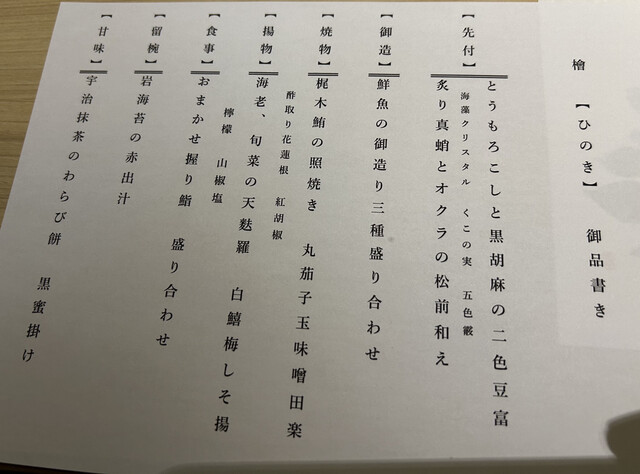 檜 【ひのき】 御品書き
【先付】 とうもろこしと黒胡麻の二色豆富
海藻クリスタル くこの実 五色霰
炙り真蛸とオクラの松前和え
【御造】 鮮魚の御造り三種盛り合わせ
【焼物】 梶木鮪の照焼き 丸茄子玉味噌田楽
酢取り花蓮根 紅胡椒
【揚物】 海老、旬菜の天麩羅 白鱚梅しそ揚
檸檬 山椒塩
【食事】 おまかせ握り鮨 盛り合わせ
【留椀】 岩海苔の赤出汁
【甘味】 宇治抹茶のわらび餅 黒蜜掛け